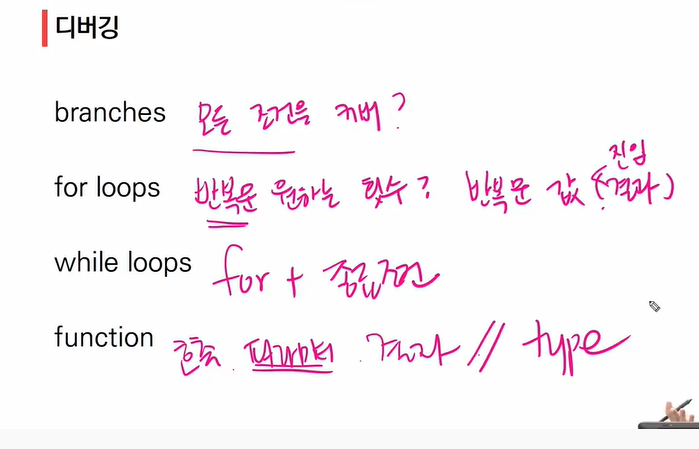 디버깅
branches 모든 조건을 커버?
for loops 반복문 원하는 횟수? 반복문 값 (진입 결과)
while loops for + 종료조건
function 호출. 파라미터. 결과 // type